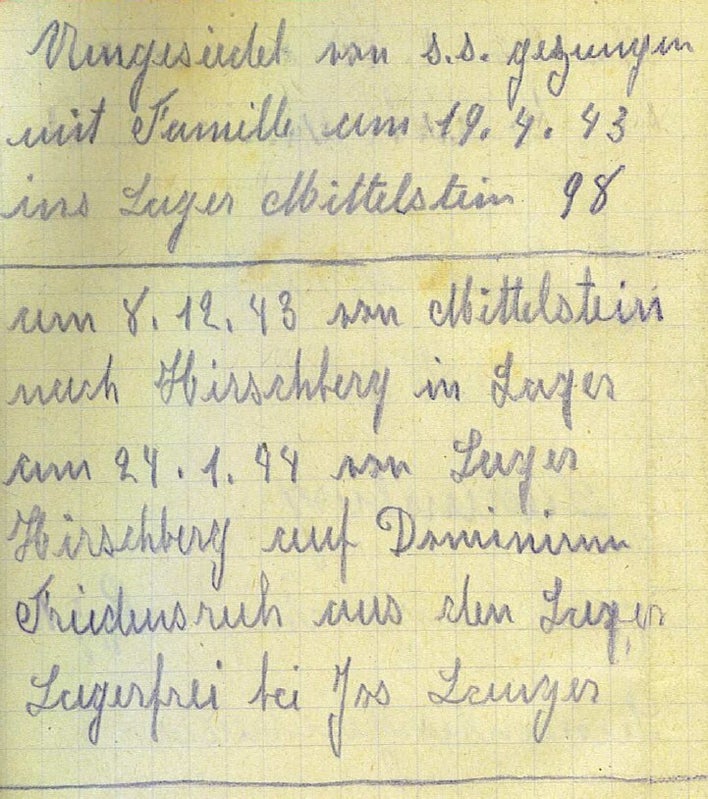 Umgesiedet von s.s. gezungen
mit Famille am 19. 4. 43
ins Lager Mittelstein 98
am 8. 12. 43 von Mittelstein
nach Hirschberg in Lager
am 24. 1. 44 von Lager
Hirschberg auf Dominium
Friedensruh aus den Lager
Lagerfrei bei Jos Langer